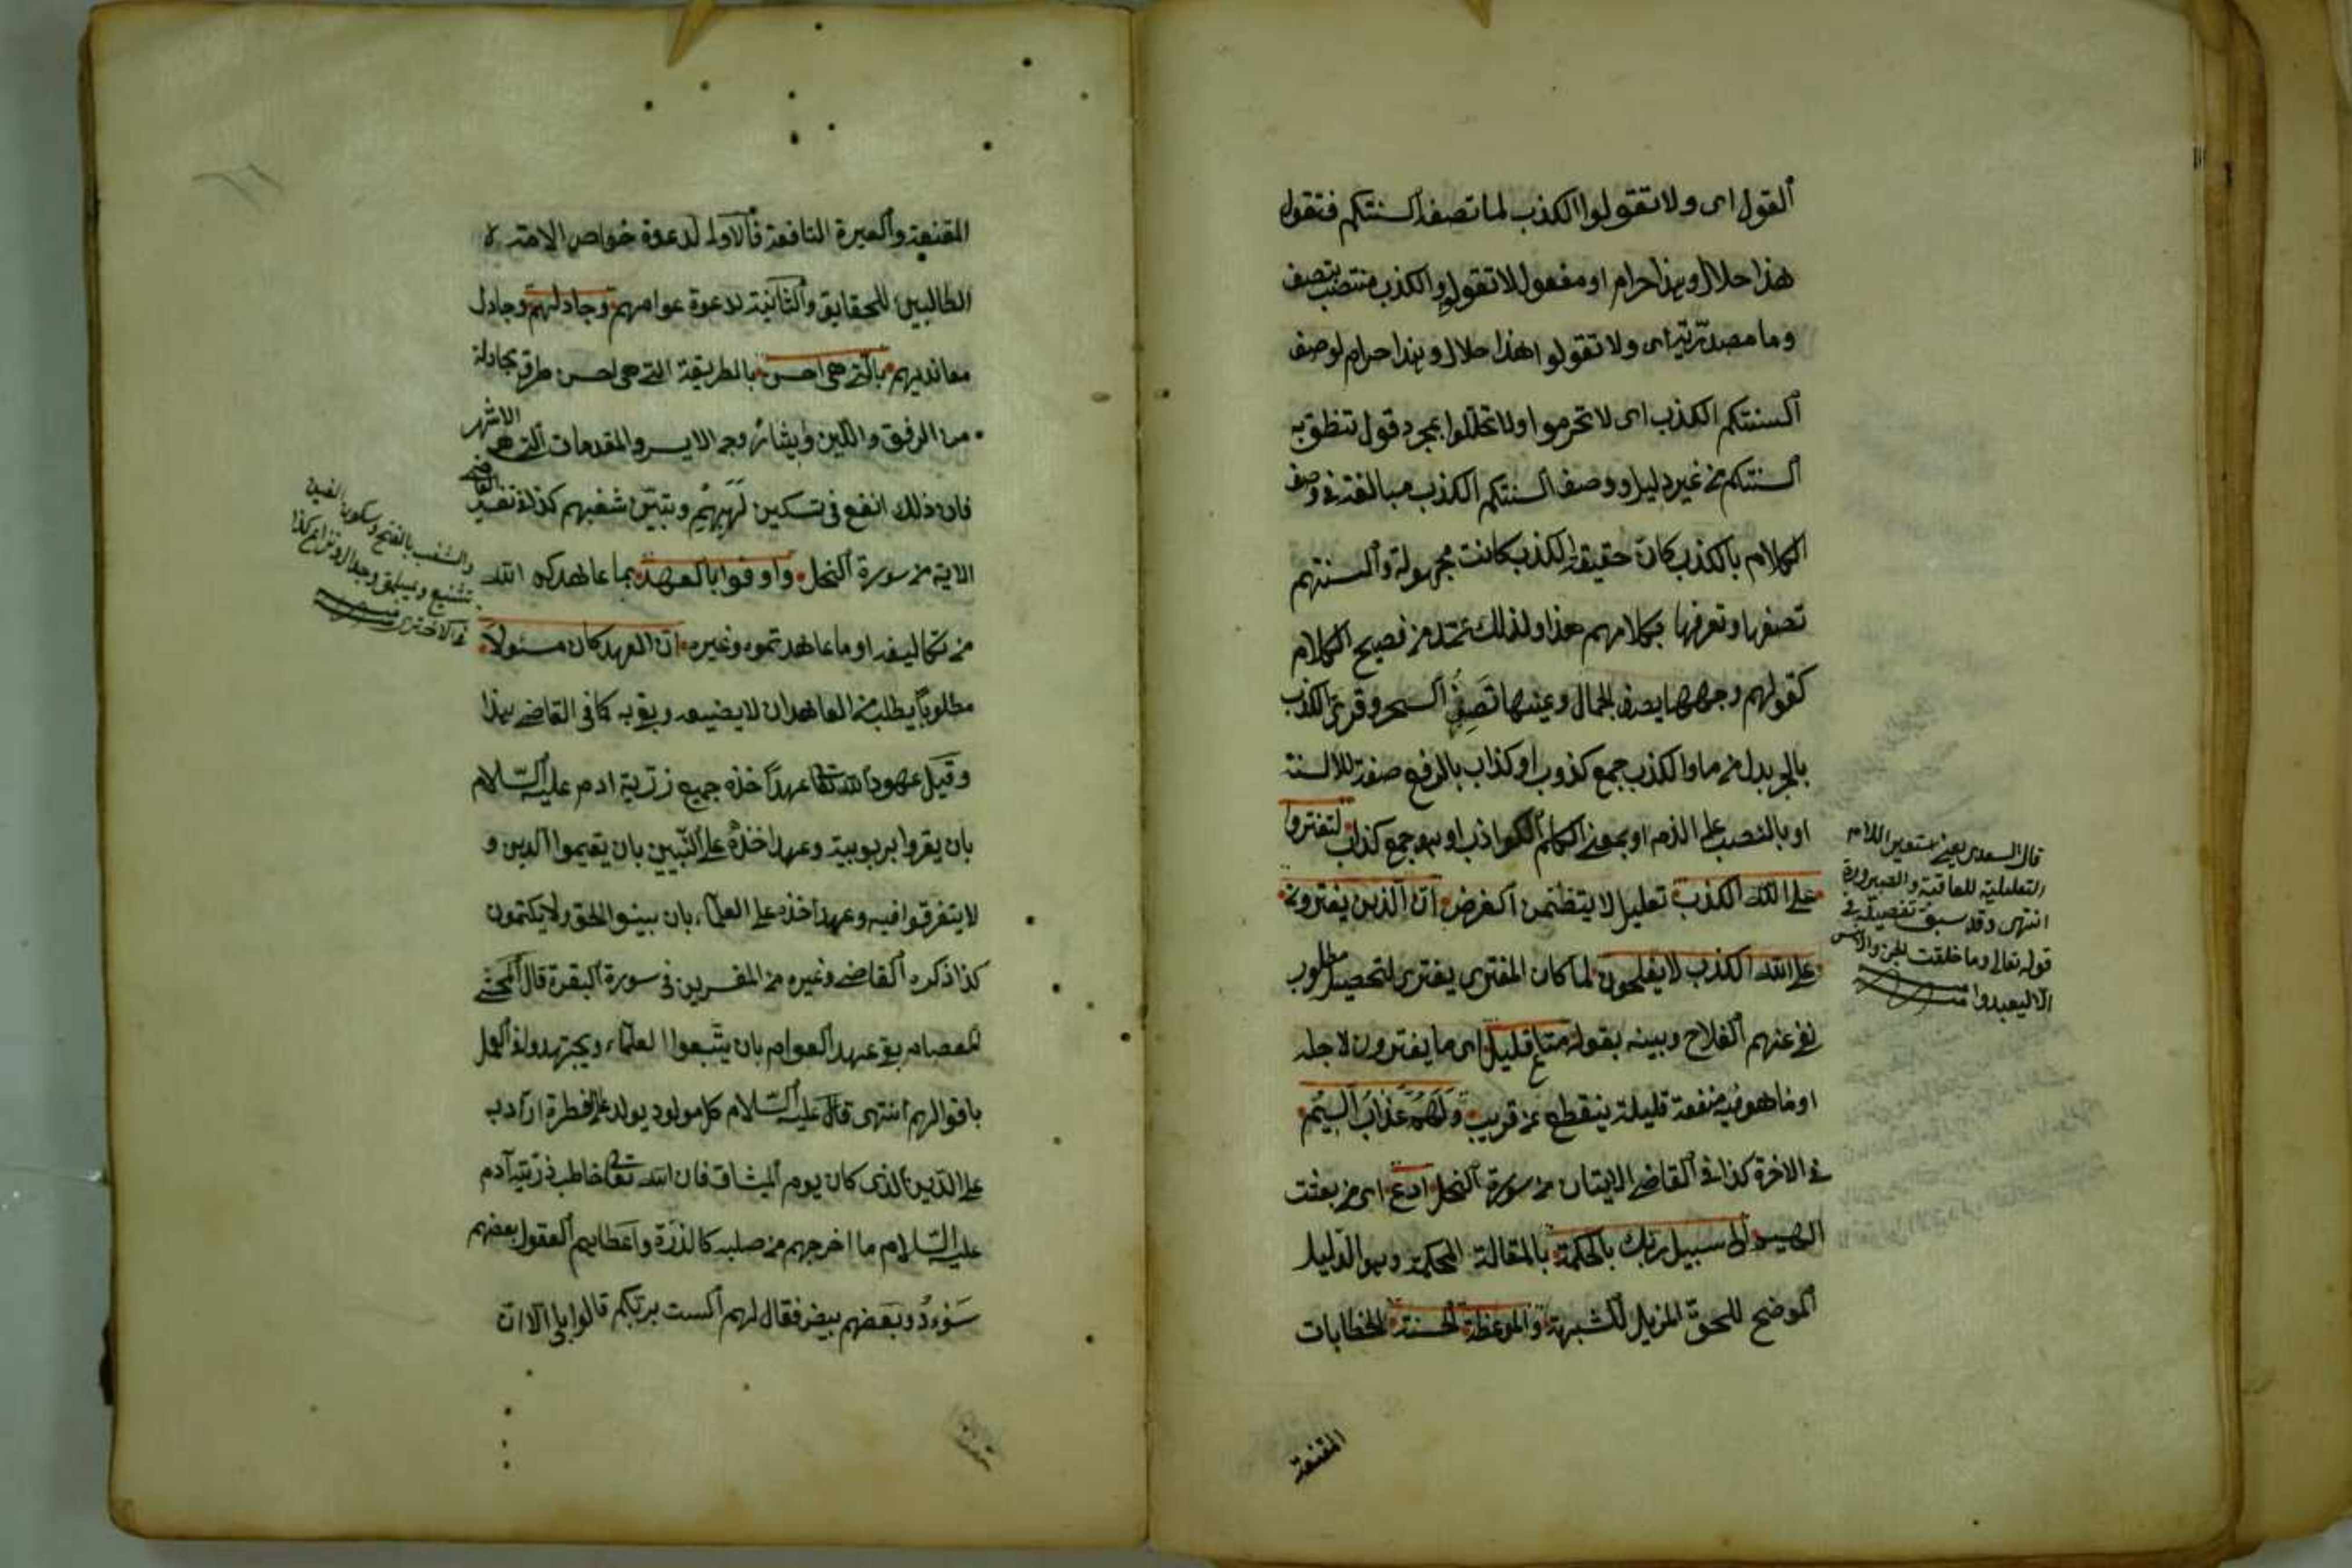 القول اى ولا تقولوا الكذب لما تصف السنتكم فتقول
هذا حلال وهذا حرام او مفعول لا تقولوا والكذب منتصب بتصف
وما مصدرية اى ولا تقولوا هذا حلال وهذا حرام لوصف
السنتكم الكذب اى لا تحرموا ولا تحللوا بمجرد قول تنطق به
السنتكم من غير دليل ووصف السنتكم الكذب مبالغة فى وصف
الكلام بالكذب كان حقيقة الكذب كانت مجهولة والسنتهم
تصفها وتعرفها بكلامهم هذا ولذلك عد من فصيح الكلام
كقولهم وجهها يصف الجمال وعينها تصف السحر وقرئ الكذب
بالجر بدل من ما والكذب جمع كذوب او كذاب بالرفع صفة للالسنة
او بالنصب على الذم او بمعنى الكلم الكواذب او هو جمع كذاب لتفتروا
على الله الكذب تعليل لا يتضمن الغرض ان الذين يفترون
على الله الكذب لا يفلحون لما كان المفترى يفترى لتحصيل مطلوب
نفى عنهم الفلاح وبينه بقوله متاع قليل اى ما يفترون لاجله
او ما هم فيه منفعة قليلة ينقطع عن قريب ولهم عذاب اليم
فى الاخرة كذا فى القاضى الايتان من سورة النحل ادع اى من بعثت
اليهم الى سبيل ربك بالحكمة بالمقالة المحكمة وهو الدليل
الموضح للحق المزيل للشبهة والموعظة الحسنة الخطابات
المقنعة
قال السعدى يعنى تستعير اللام
التعليلية للعاقبة والصيرورة
انتهى وقد سبق تفصيله فى
قوله تعالى وما خلقت الجن والانس
الا ليعبدون منه
المقنعة والعبرة النافعة فالاولى لدعوة خواص الامة
الطالبين للحقايق والثانية لدعوة عوامهم وجادلهم وجادل
معانديهم بالتى هى احسن بالطريقة التى هى احسن طرق مجادلة
من الرفق واللين وايثار وجه الايسر والمقدمات التى هى الاشهر
فان ذلك انفع فى تسكين لهبهم وتبيين شغبهم كذا فى تفسير القاضى
الاية من سورة النحل واوفوا بالعهد بما عاهدكم الله
من تكاليفه او ما عاهدتموه وغيره ان العهد كان مسئولا
مطلوبا يطلب من المعاهد ان لا يضيعه ويفى به كما فى القاضى هذا
وقيل عهود الله تعالى عهد اخذه جميع ذرية ادم عليه السلام
بان يقروا بربوبيته وعهد اخذه على النبيين بان يقيموا الدين و
لا يتفرقوا فيه وعهد اخذه على العلماء بان يبينوا الحق ولا يكتمون
كذا ذكره القاضى وغيره من المفسرين فى سورة البقرة قال المحشى
العصام بقى عهد العوام بان يتبعوا العلماء ويجتهدوا فى العمل
باقوالهم انتهى قال عليه السلام كل مولود يولد على الفطرة اراد به
على الدين الذى كان يوم الميثاق فان الله تعالى خاطب ذرية آدم
عليه السلام ما اخرجهم من صلبه كالذرة واعطاهم العقول بعضهم
سود وبعضهم بيض فقال لهم الست بربكم قالوا بلى الا ان
والشغب بالفتح وسكون الغين
تشنيع وجدال ونزاع كذا
فى الاختري منه